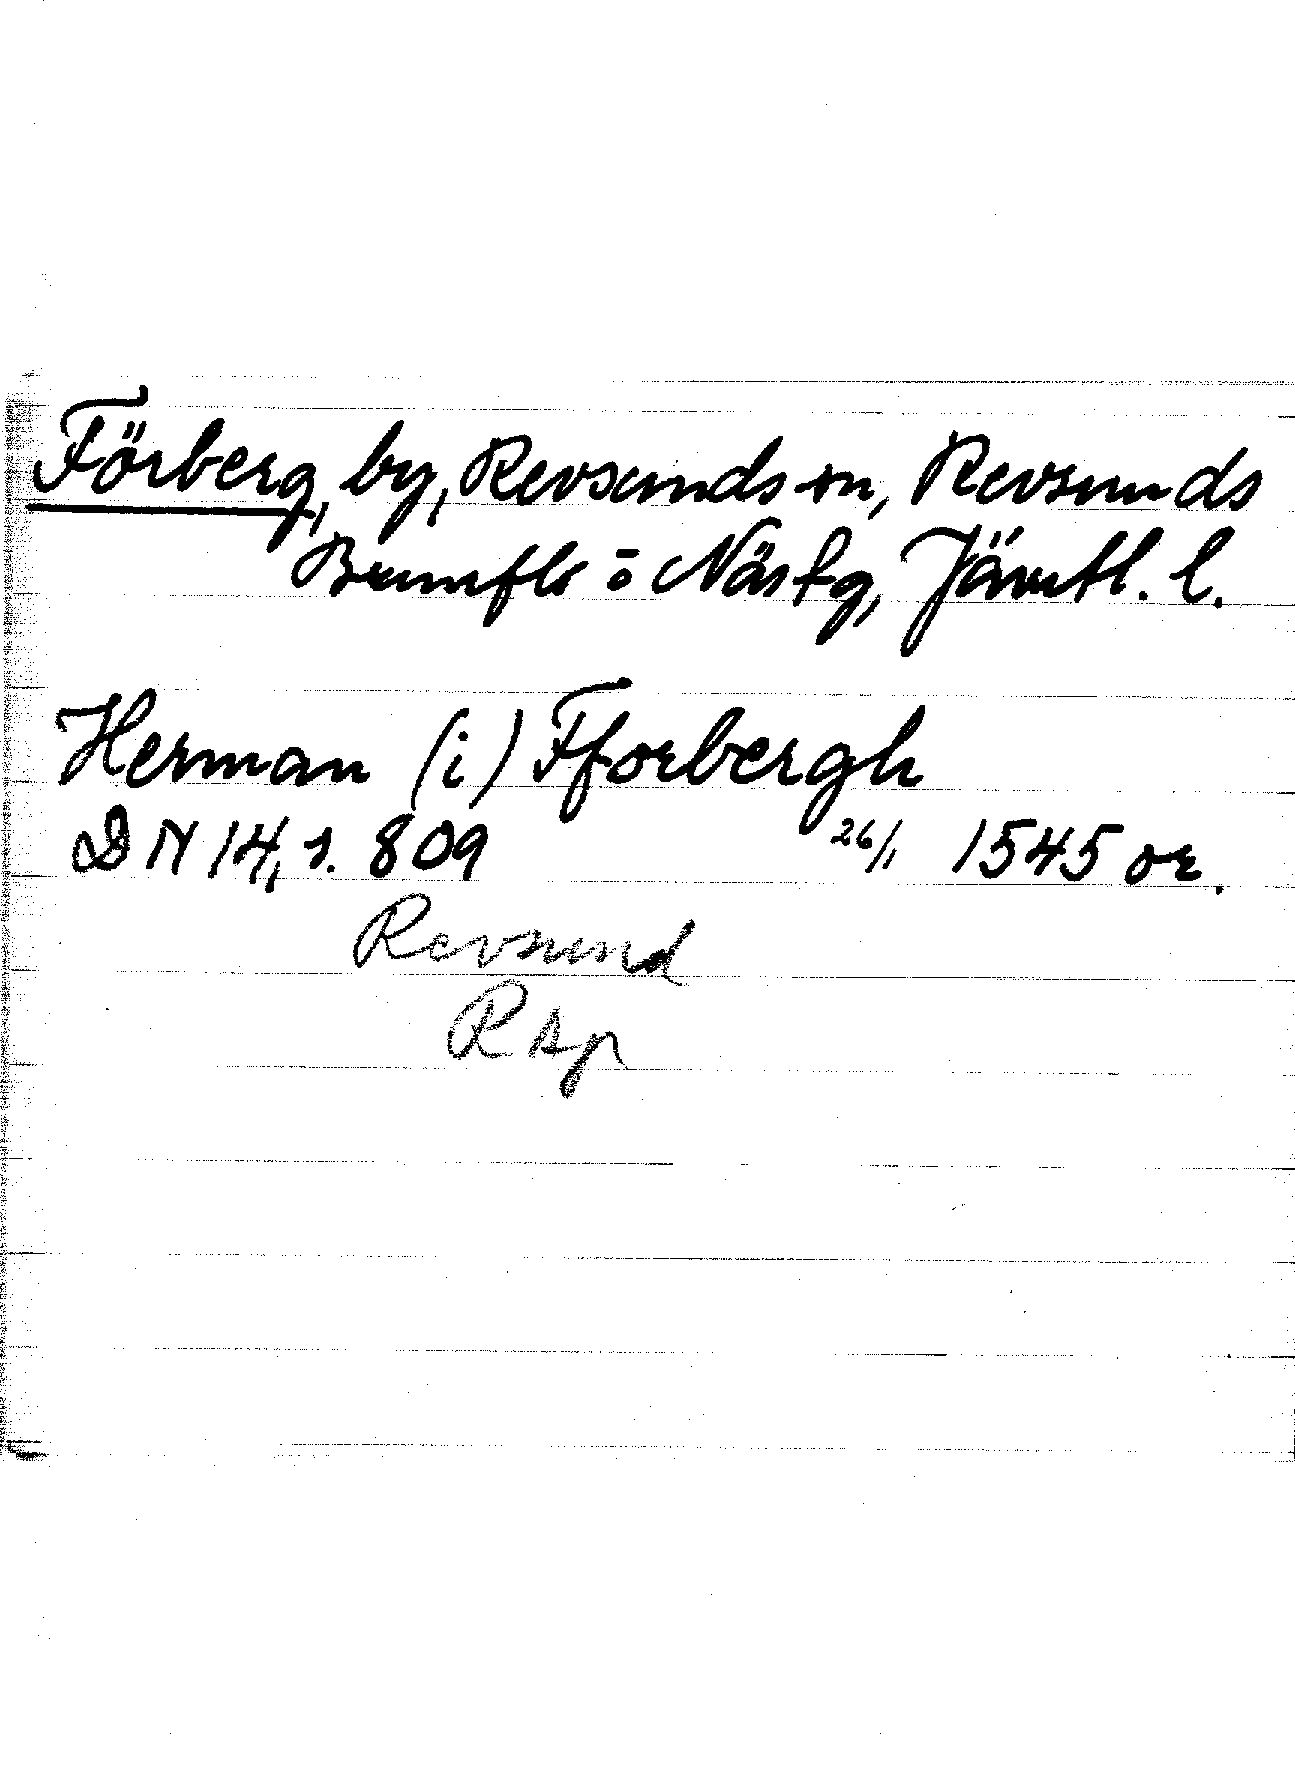 Förberg, by, Revsunds sn, Revsunds
Brunflo o Näs tg, Jämtl. l.
Herman (i) Fforbergh
DN 14, s. 809 26/1 1545 or.
Revsund
RAp